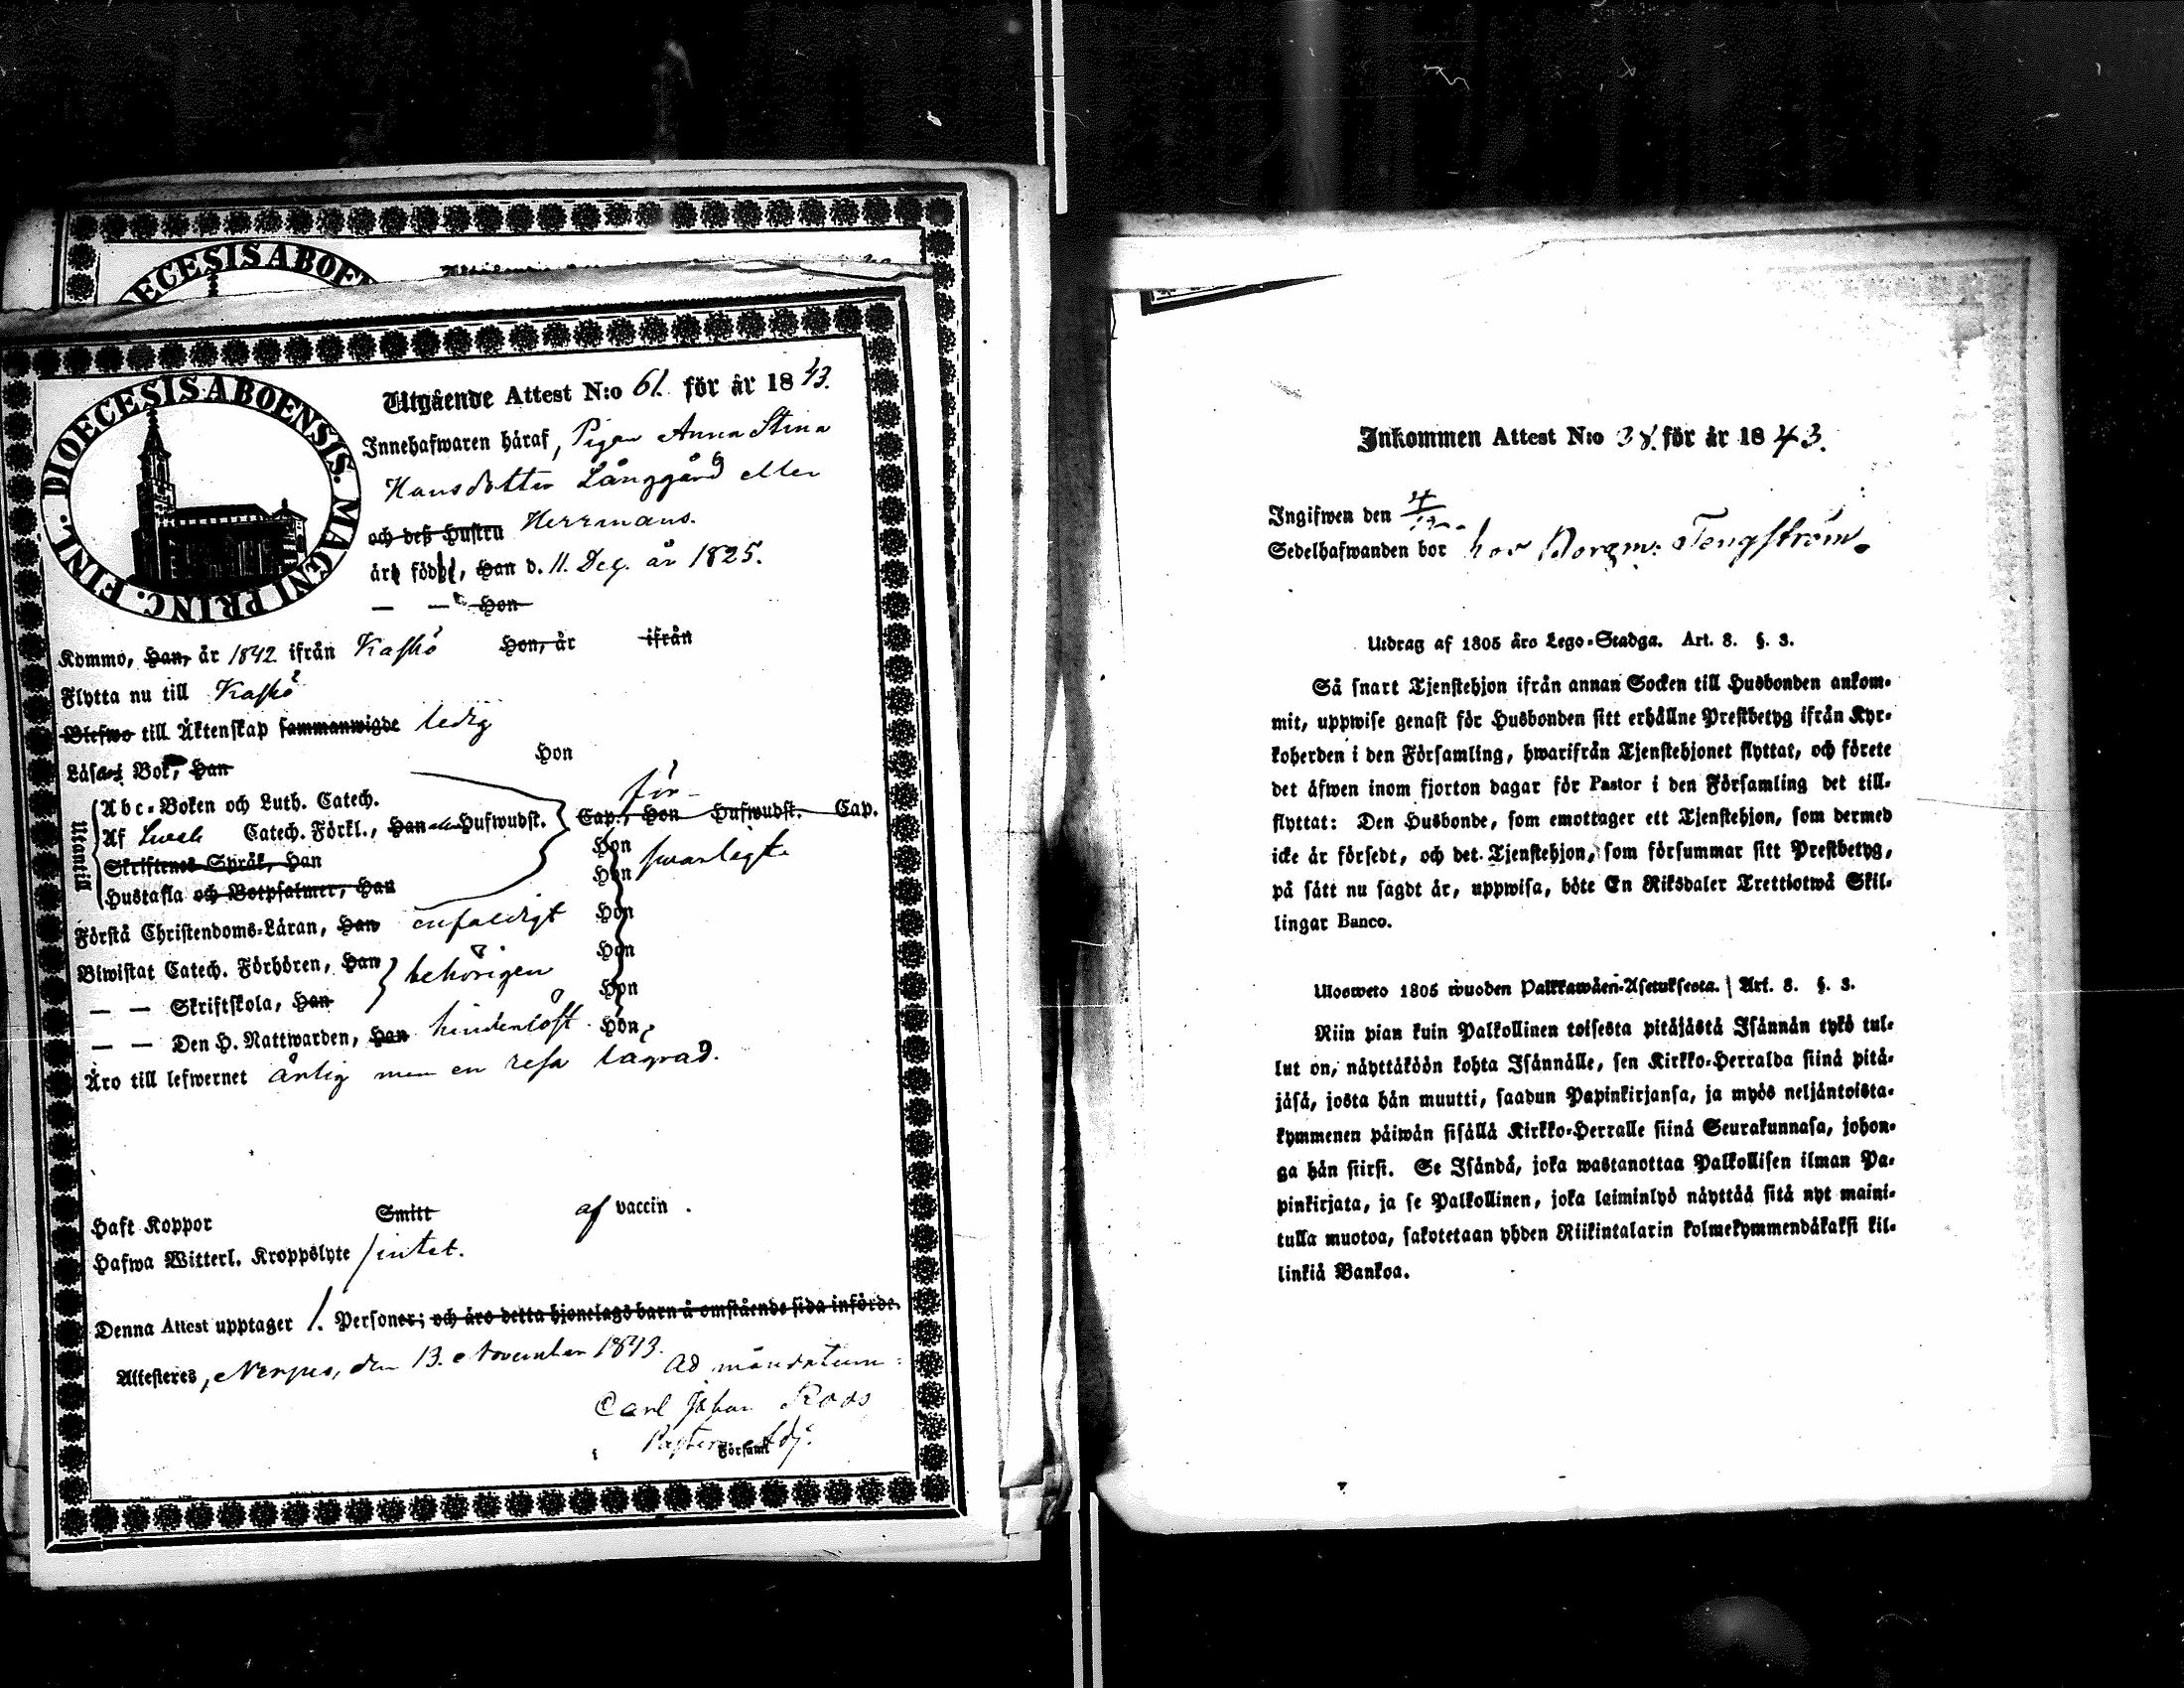 ECESIS ABOEN
DIOECESIS ABOENSIS. MAGNI PRINC. FINL.
Utgående Attest N:o 61. för år 1843.
Innehafwaren häraf, Pigan Anna Stina
Hansdotter Långgård eller
och deß Hustru Herrmans.
är född, Han d. 11. Dec. år 1825.
— — Hon
Kommo, Han, år 1842 ifrån Kaskö Hon, år ifrån
Flytta nu till Kaskö
Blefwo till Äktenskap sammanwigde ledig
Läsa i Bok, Han Hon
Utantill
Abc-Boken och Luth. Catech. för-
Af Catech. Förkl., Han Hufwudst. Cap., Hon Hufwudst. Cap.
Skriftenes Språk, Han Hon swarligt.
Hustafla och Botpsalmer, Han Hon
Förstå Christendoms-Läran, Han enfaldigt Hon
Biwistat Catech. Förhören, Han behörigen Hon
— — Skriftskola, Han Hon
— — Den H. Nattwarden, Han hinderlöst Hon
Äro till lefwernet ärlig men en resa lägrad.
Haft Koppor Smitt af vaccin .
Hafwa Witterl. Kroppslyte intet.
Denna Attest upptager 1. Personer; och äro detta hjonelags barn å omstående sida införde.
Attesteres, Nerpes, den 13. November 1843.
Ad mandatum:
Carl Johan Roos
Pastors Adj.
i Församl
Inkommen Attest N:o 38. för år 1843.
Ingifwen den 4/12.
Sedelhafwanden bor hos Borgm: Tengström.
Utdrag af 1805 års Lego-Stadga. Art. 8. §. 3.
Så snart Tjenstehjon ifrån annan Socken till Husbonden ankom-
mit, uppwise genast för Husbonden sitt erhållne Prestbetyg ifrån Kyr-
koherden i den Församling, hwarifrån Tjenstehjonet flyttat, och förete
det äfwen inom fjorton dagar för Pastor i den Församling det till-
flyttat: Den Husbonde, som emottager ett Tjenstehjon, som dermed
icke är försedt, och det Tjenstehjon, som försummar sitt Prestbetyg,
på sätt nu sagdt är, uppwisa, böte En Riksdaler Trettiotwå Skil-
lingar Banco.
Ulosweto 1805 wuoden Palkkawäen-Asetuksesta. Art. 8. §. 3.
Niin pian kuin Palkollinen toisesta pitäjästä Isännän tykö tul-
lut on, näyttäköön kohta Isännälle, sen Kirkko-Herralda siinä pitä-
jäsä, josta hän muutti, saadun Papinkirjansa, ja myös neljäntoista-
kymmenen päiwän sisällä Kirkko-Herralle siinä Seurakunnasa, johon-
ga hän siirsi. Se Isändä, joka wastanottaa Palkollisen ilman Pa-
pinkirjata, ja se Palkollinen, joka laiminlyö näyttää sitä nyt maini-
tulla muotoa, sakotetaan yhden Riikintalarin kolmekymmendäkaksi kil-
linkiä Bankoa.